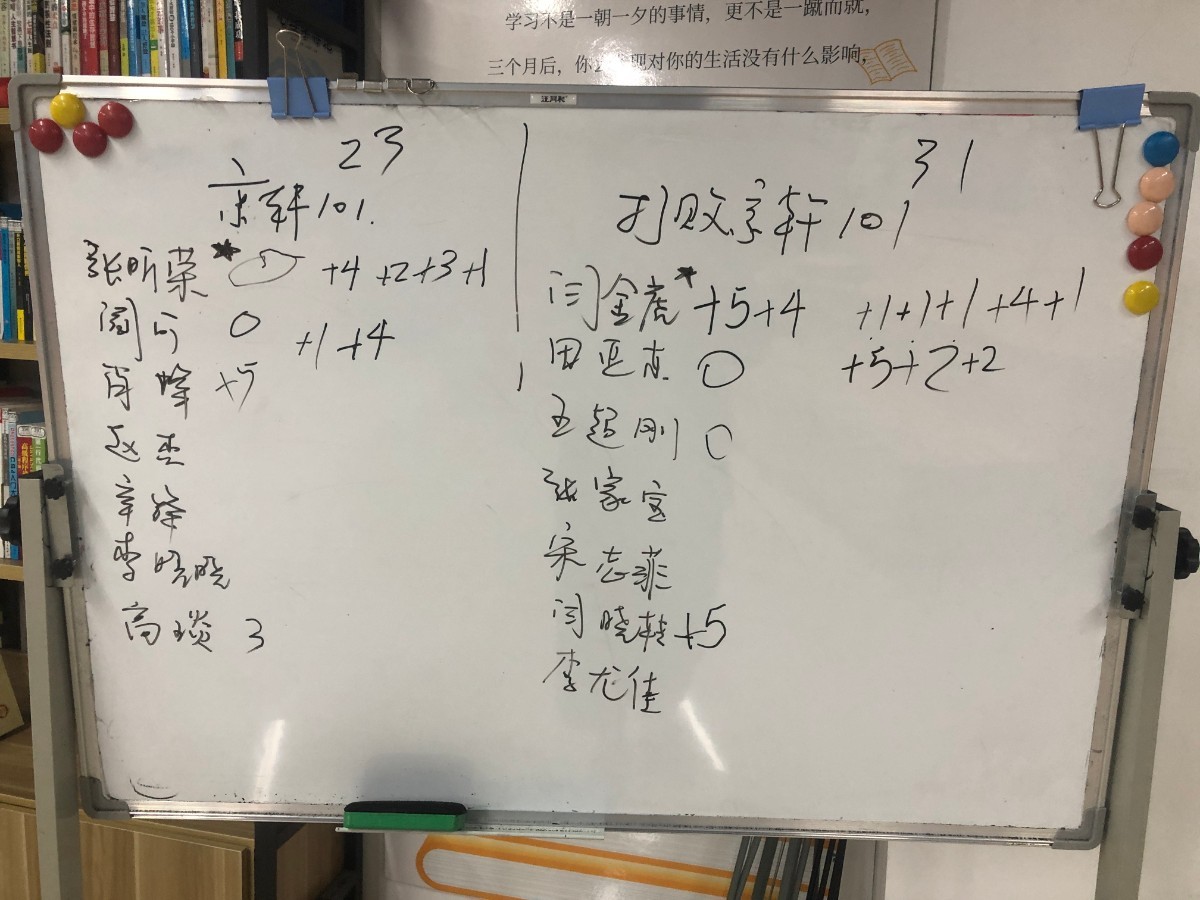 学习不是一朝一夕的事情，更不是一蹴而就，
三个月后，你会发现对你的生活没有什么影响，
23
京轩101.
张昕荣* +4 +2+3+1
阎可 0 +1 +4
肖峰 +5
赵杰
辛峰
李晓晓
高琰 3
31
打败京轩101
闫金虎* +5+4 +1+1+1+4+1
田亚东 0 +5+2+2
王超刚 0
张家宝
宋志菲
闫晓赫+5
李龙佳